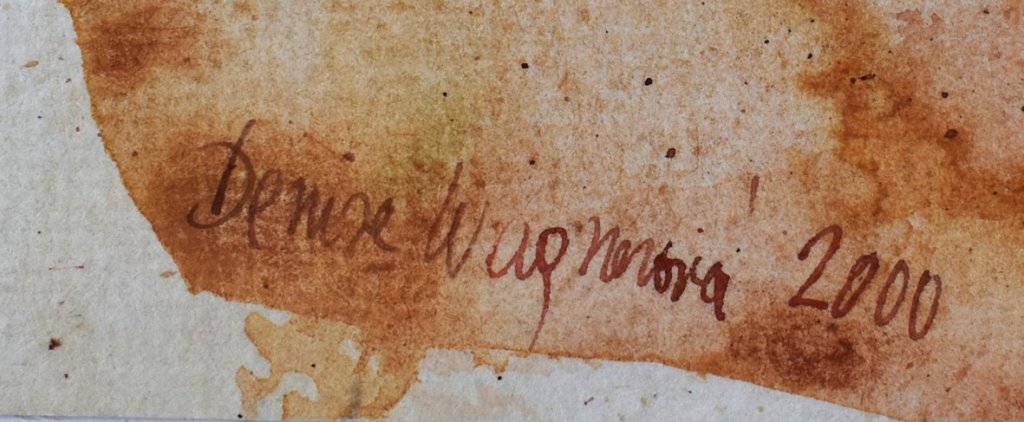 Denise Wagnerová 2000